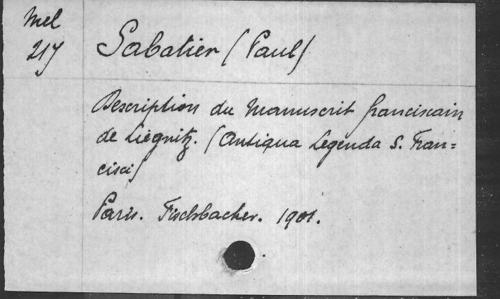 Mel
217
Sabatier (Paul)
Description du Manuscrit franciscain
de Liegnitz. (Antiqua Legenda S. Fran=
cisci)
Paris. Fischbacher. 1901.